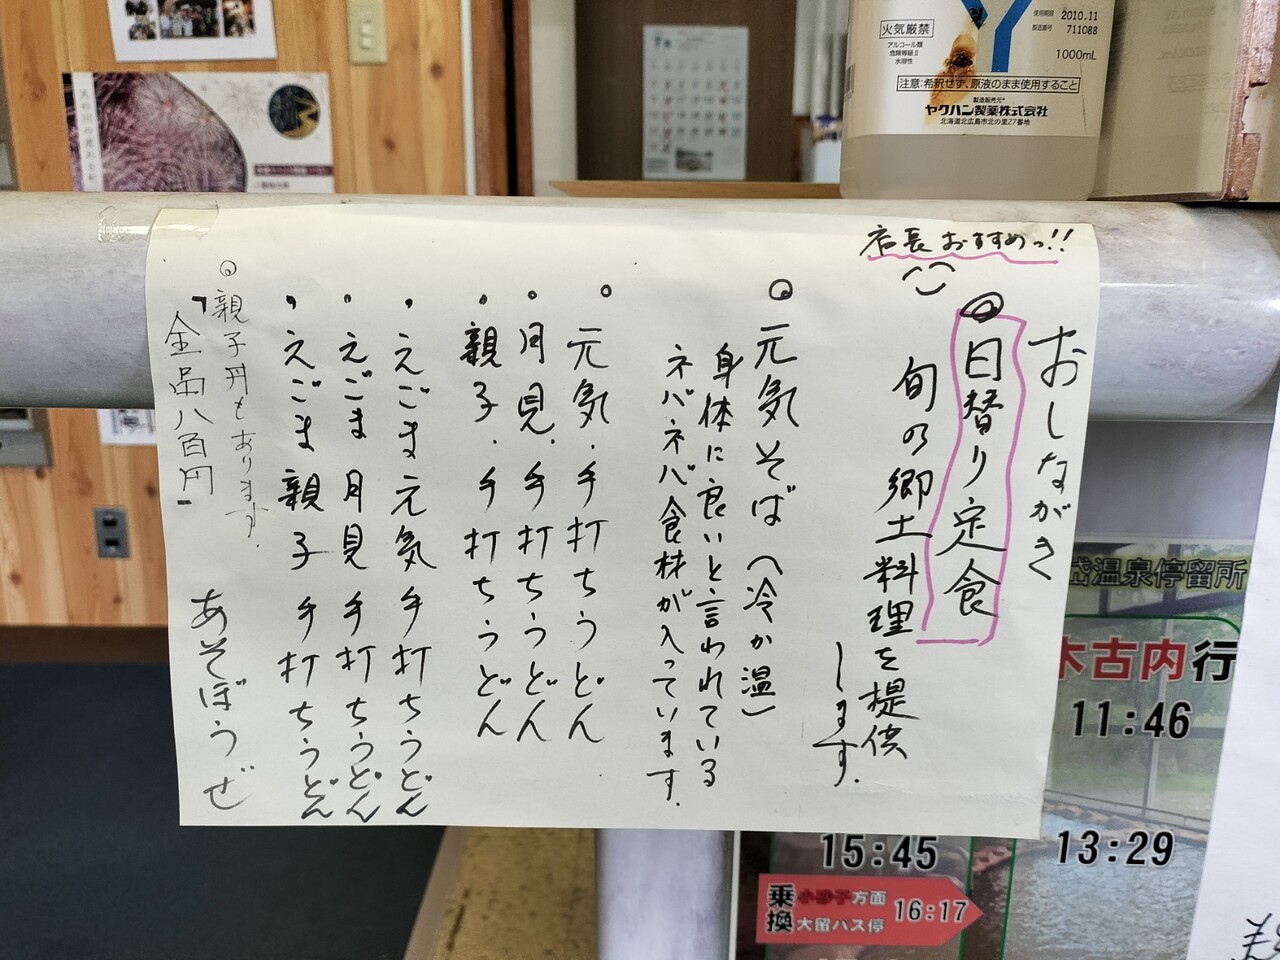 店長おすすめっ!!
おしながき
◎日替り定食
旬の郷土料理を提供
します.
◎元気そば(冷か温)
身体に良いと言われている
ネバ・ネバ食材が入っています.
元気・手打ちうどん
月見・手打ちうどん
親子・手打ちうどん
えごま元気手打ちうどん
えごま月見手打ちうどん
えごま親子手打ちうどん
◎親子丼もあります.
「全品八百円」
あそぼうぜ
使用期限 2010.11
製造番号 711088
火気厳禁
アルコール類
危険等級Ⅱ
水溶性
1000mL
注意:希釈せず、原液のまま使用すること
製造販売元
ヤクハン製薬株式会社
北海道北広島市北の里27番地
天の川の流れる町
岱温泉停留所
木古内行
11:46
13:29
15:45
乗換
小砂子方面
大留バス停
16:17